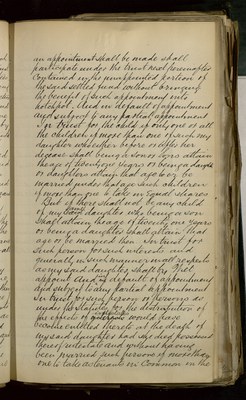 an appointment shall be made shall
participate under the trust next hereinafter
contained in the unappointed portion of
the said settled fund without bringing
the benefit of such appointment into
hotchpot. And in default of appointment
and subject to any partial appointment
In trust for the child if only one or all
the children if more than one of such my
daughter whether before or after her
decease shall being a son or sons attain
the age of twenty one years or being a daughter
or daughters attain that age or be
married under that age such children
if more than one to take in equal shares
But if there shall not be any child
of my said daughter who being a son
shall attain the age of twenty one years
or being a daughter shall attain that
age or be married then in trust for
such person for such interests and
generally in such manner in all respects
as my said daughter shall by Will
appoint And in default of appointment
and subject to any partial appointment
In trust for such person or persons as
under the statutes for the distribution of
the effects of intestates would have
become entitled thereto at the death of
my said daughter had she died possessed
thereof intestate and without having
been married such persons if more than
one to take as tenants in common in the